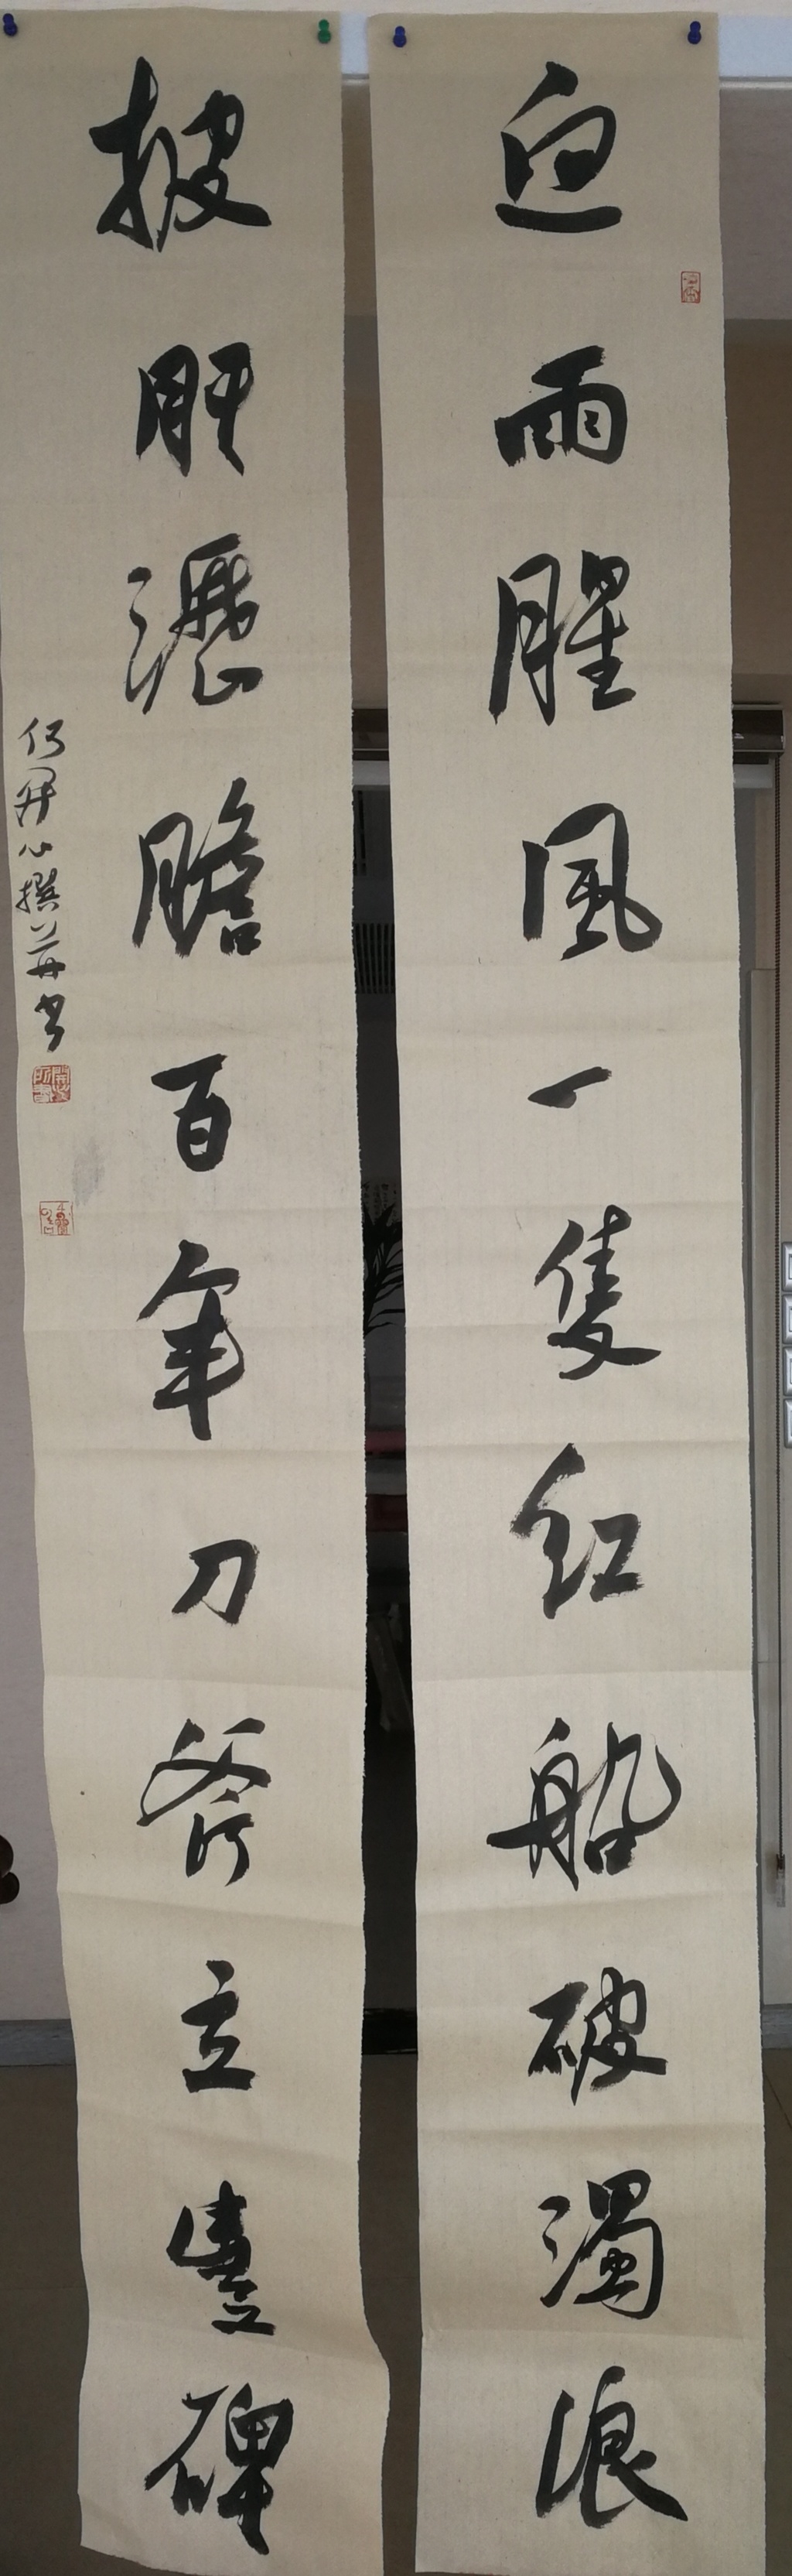 血雨腥風一隻紅船破濁浪
披肝瀝膽百年刀斧立豐碑
何開心撰并书